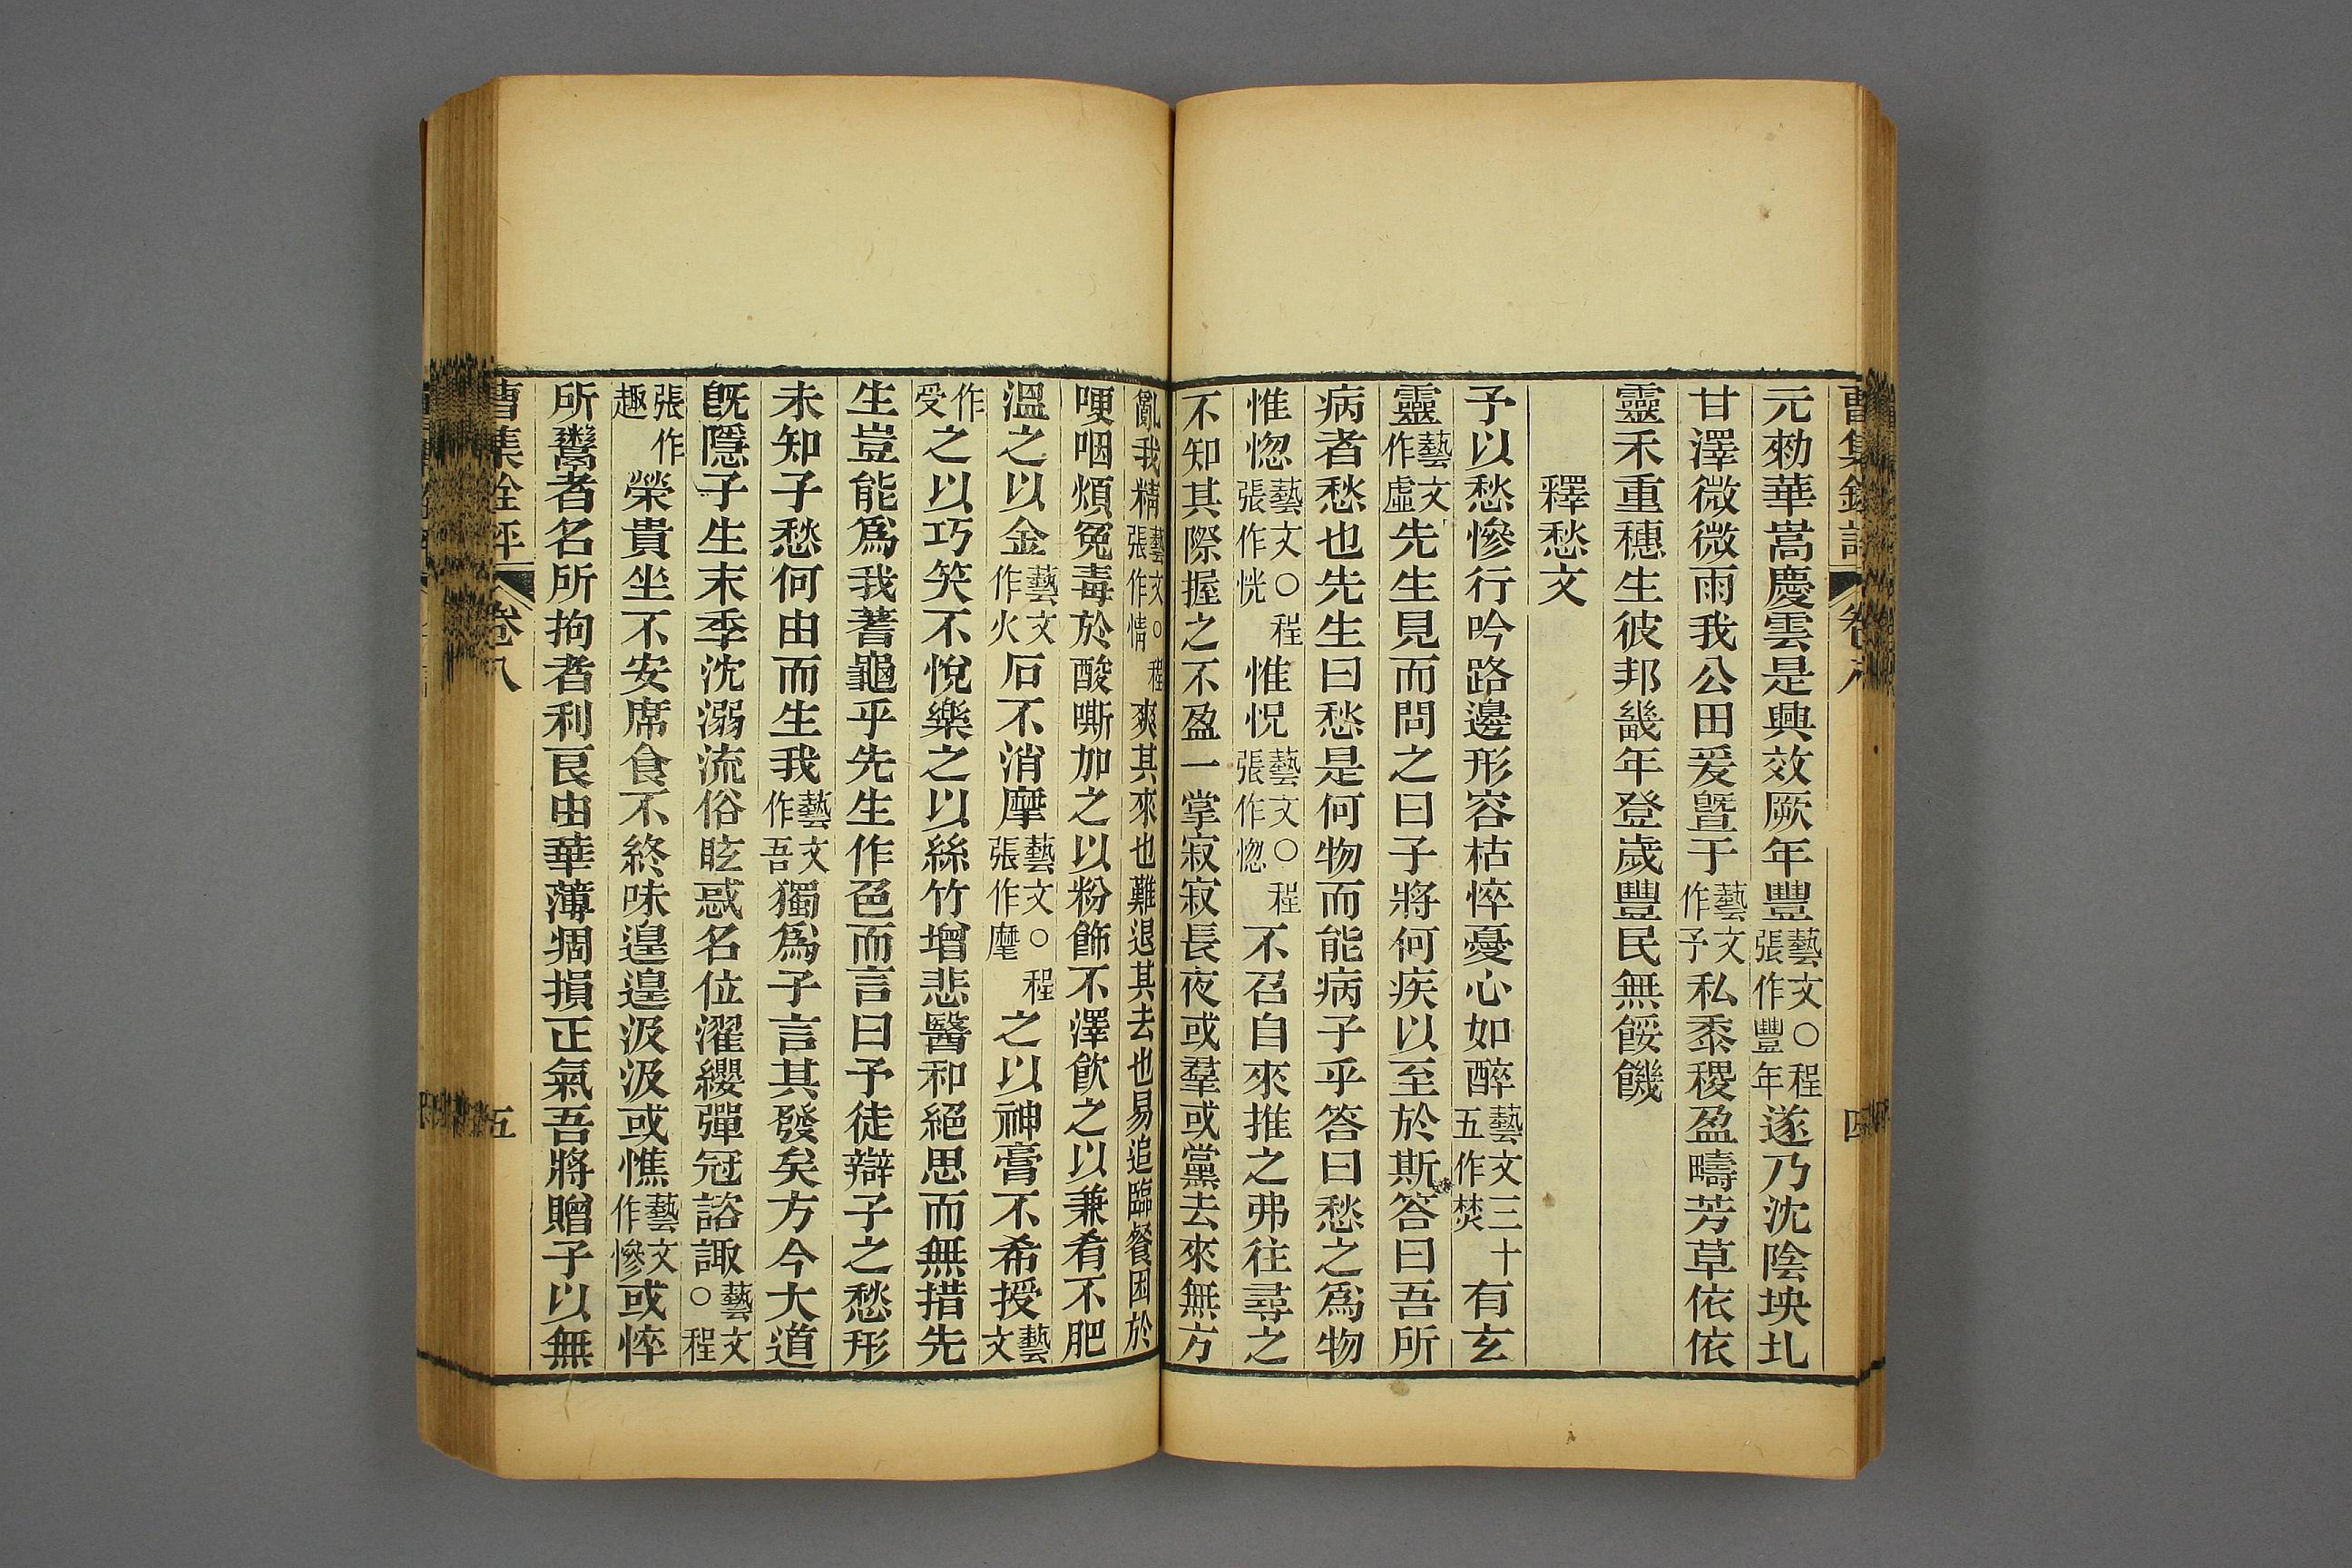 曹集銓評 卷八 四
元勑華嵩慶雲是興效厥年豐藝文〇程張作豐年遂乃沈陰坱圠
甘澤微微雨我公田爰曁于藝文作予私黍稷盈疇芳草依依
靈禾重穗生彼邦畿年登歲豐民無餒饑
釋愁文
予以愁慘行吟路邊形容枯悴憂心如醉藝文三十五作焚有玄
靈藝文作虛先生見而問之曰子將何疾以至於斯答曰吾所
病者愁也先生曰愁是何物而能病子乎答曰愁之爲物
惟惚藝文〇程張作恍惟怳藝文〇程張作惚不召自來推之弗往尋之
不知其際握之不盈一掌寂寂長夜或羣或黨去來無方
亂我精藝文〇程張作情爽其來也難退其去也易追臨餐困於
哽咽煩冤毒於酸嘶加之以粉飾不澤飮之以兼肴不肥
溫之以金藝文作火石不消摩藝文〇程張作麾之以神膏不希授藝文
作受之以巧笑不悅樂之以絲竹增悲醫和絕思而無措先
生豈能爲我蓍龜乎先生作色而言曰予徒辯子之愁形
未知子愁何由而生我藝文作吾獨爲子言其發矣方今大道
旣隱子生末季沈溺流俗眩惑名位濯纓彈冠諮諏藝文〇程
張作趣榮貴坐不安席食不終味遑遑汲汲或憔藝文作慘或悴
所鬻者名所拘者利良由華薄凋損正氣吾將贈子以無
曹集銓評 卷八 五